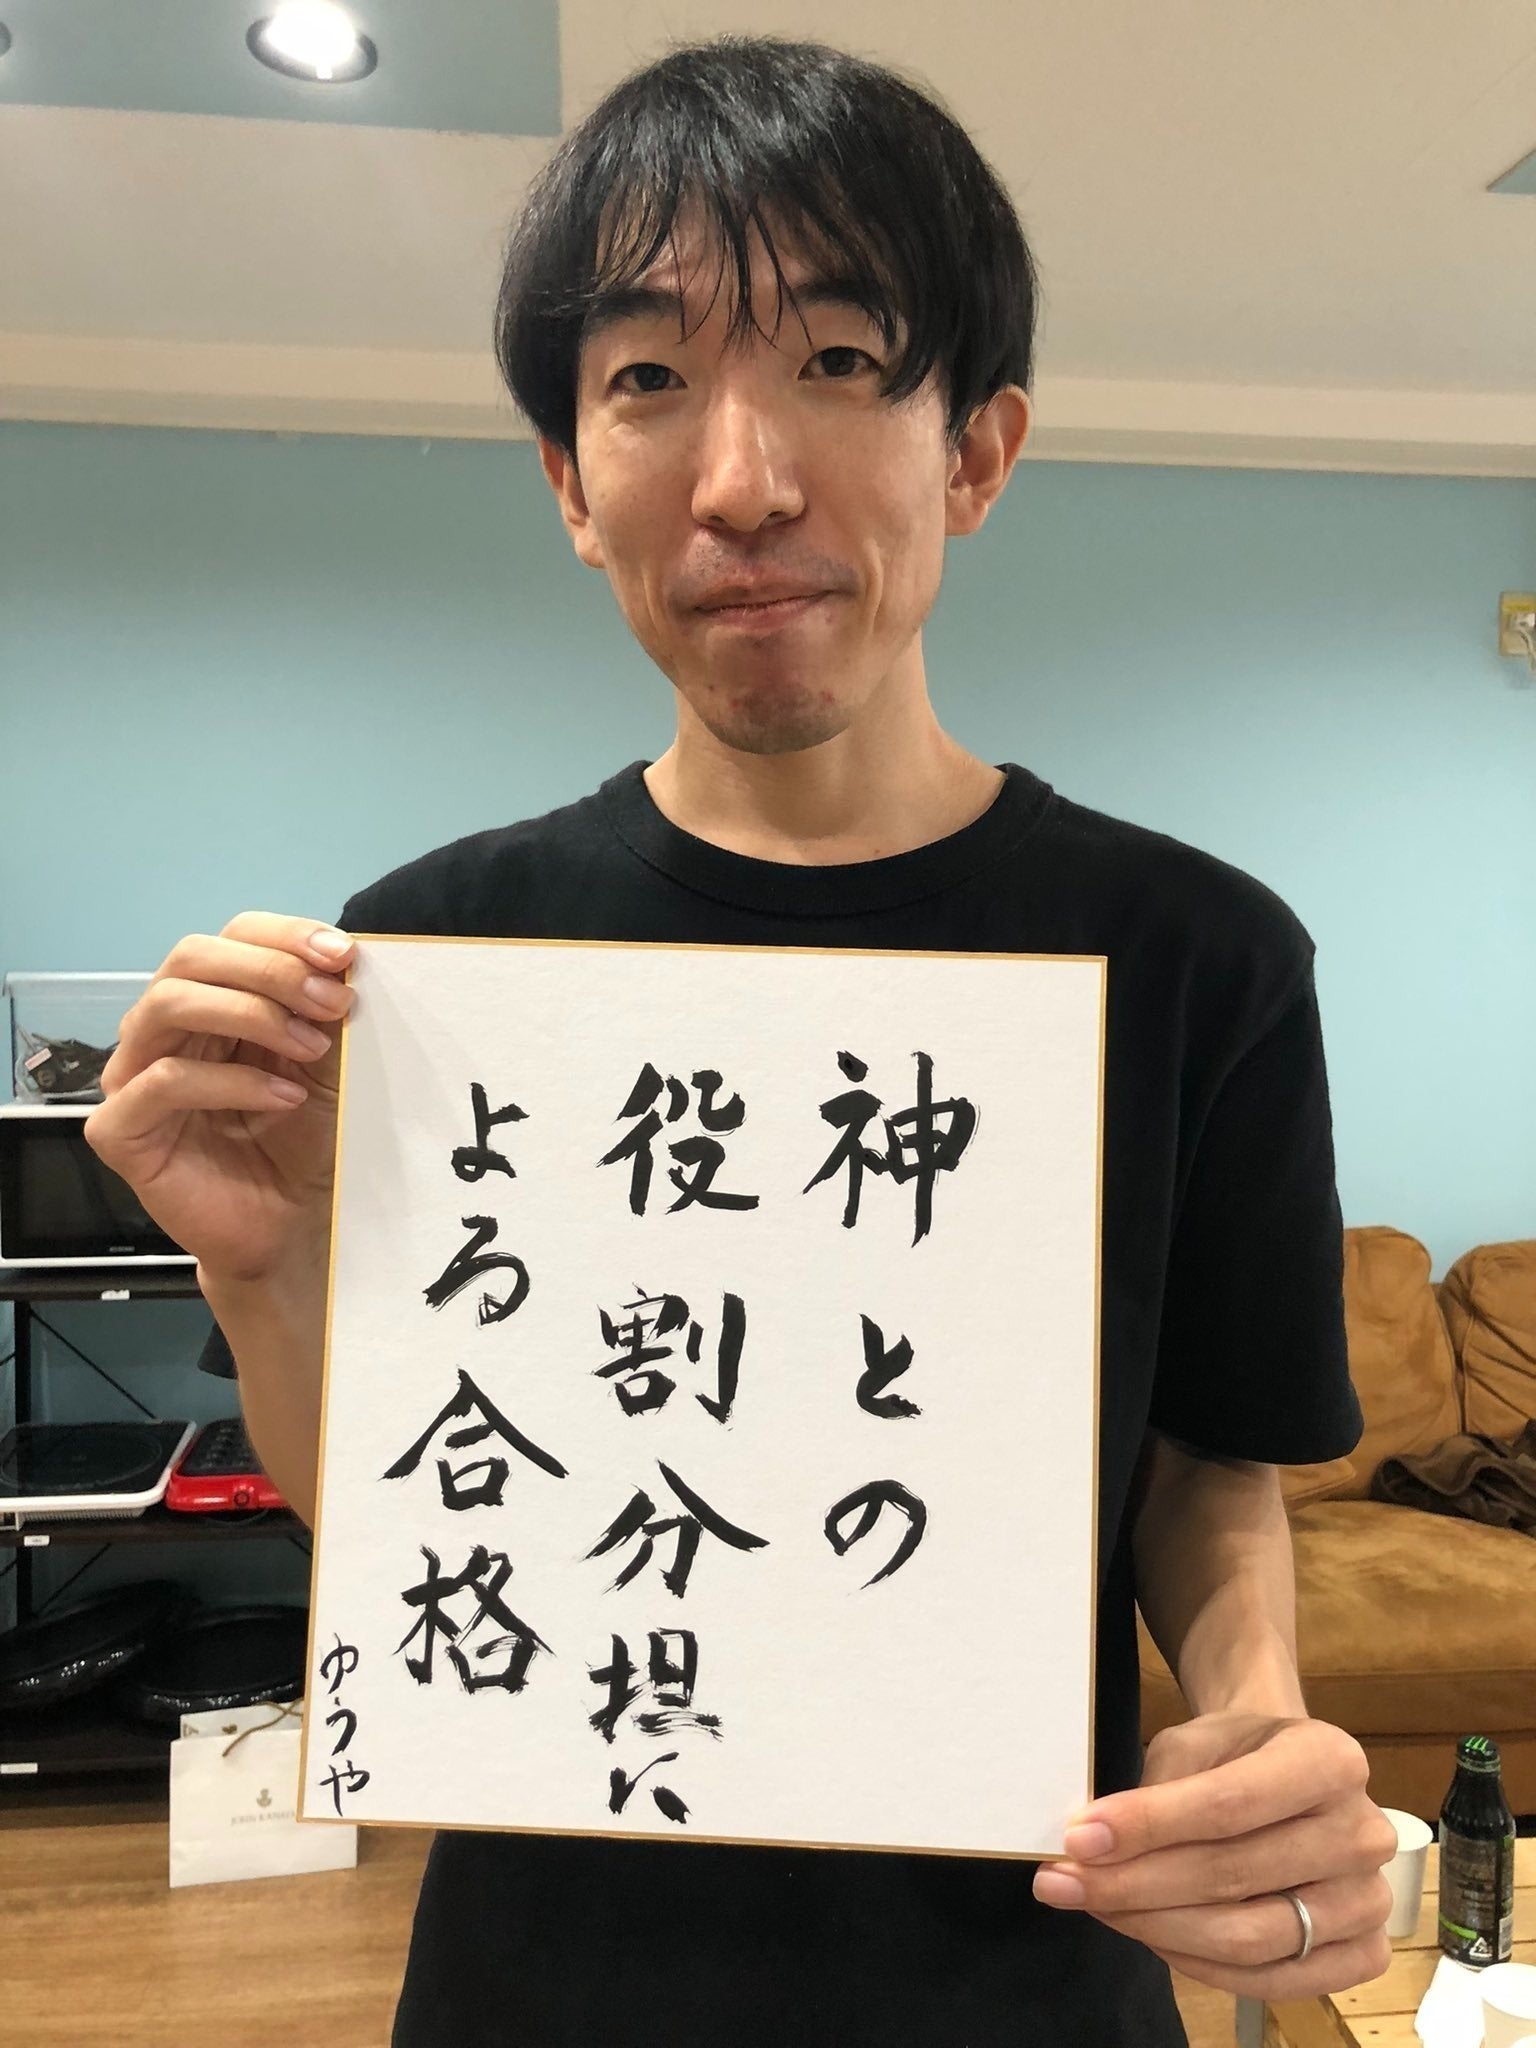 神との
役割分担に
よる合格
ゆうや